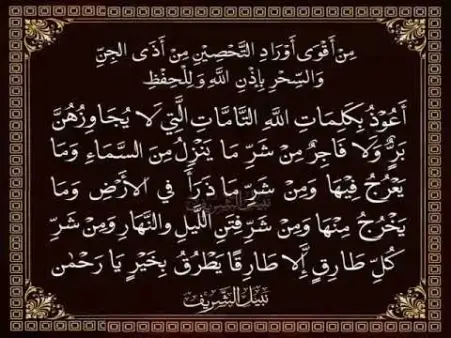 مِنْ أَقْوَى أَوْرَادِ التَّحْصِيْنِ مِنْ أَذَى الجِنِّ
وَالسِّحْرِ بِإِذْنِ اللَّهِ وَلِلْحِفْظِ
أَعُوْذُ بِكَلِمَاتِ اللَّهِ التَّامَّاتِ الَّتِي لَا يُجَاوِزُهُنَّ
بَرٌّ وَلَا فَاجِرٌ مِنْ شَرِّ مَا يَنْزِلُ مِنَ السَّمَاءِ وَمَا
يَعْرُجُ فِيْهَا وَمِنْ شَرِّ مَا ذَرَأَ فِي الأَرْضِ وَمَا
يَخْرُجُ مِنْهَا وَمِنْ شَرِّ فِتَنِ اللَّيْلِ وَالنَّهَارِ وَمِنْ شَرِّ
كُلِّ طَارِقٍ إِلَّا طَارِقًا يَطْرُقُ بِخَيْرٍ يَا رَحْمٰن
نبيل الشريف